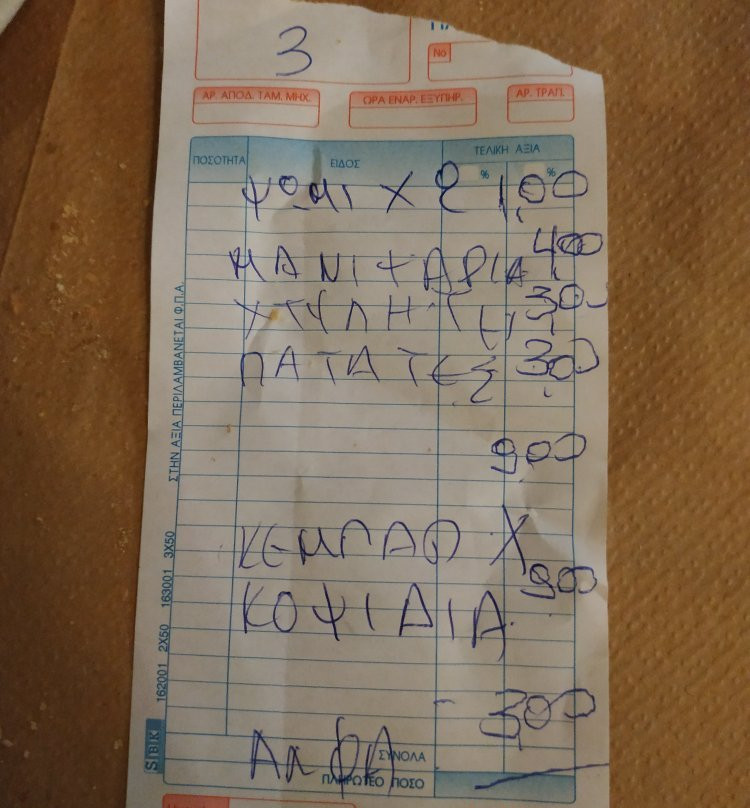 3
Νο
ΑΡ. ΑΠΟΔ. ΤΑΜ. ΜΗΧ. ΩΡΑ ΕΝΑΡ. ΕΞΥΠΗΡ. ΑΡ. ΤΡΑΠ.
ΠΟΣΟΤΗΤΑ ΕΙΔΟΣ ΤΕΛΙΚΗ ΑΞΙΑ
% %
ΨΩΜΙ Χ 2 1,00
ΜΑΝΙΤΑΡΙΑ 4,00
ΧΤΥΠΗΤΗ 3,00
ΠΑΤΑΤΕΣ 3,00
9,00
ΚΕΜΠΑΠ Χ
9,00
ΚΟΨΙΔΙΑ
3,00
ΑΛΦΑ
ΣΥΝΟΛΑ
ΠΛΗΡΩΤΕΟ ΠΟΣΟ
ΣΤΗΝ ΑΞΙΑ ΠΕΡΙΛΑΜΒΑΝΕΤΑΙ Φ.Π.Α.
162001 2X50 163001 3X50